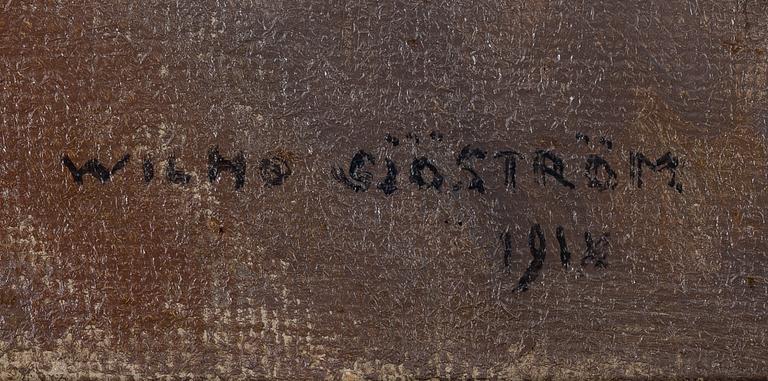 WILHO SJÖSTRÖM
1918